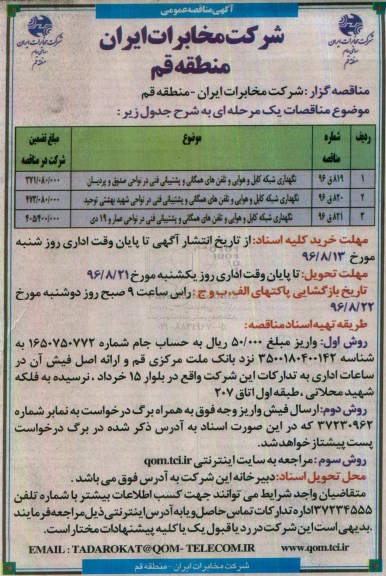 آگهی مناقصه عمومی
شرکت مخابرات ایران
منطقه قم
شرکت مخابرات ایران
سهامی عام
منطقه قم
شرکت مخابرات ایران
سهامی عام
منطقه قم
مناقصه گزار : شرکت مخابرات ایران - منطقه قم
موضوع مناقصات یک مرحله ای به شرح جدول زیر :
ردیف شماره مناقصه موضوع مبلغ تضمین شرکت در مناقصه
۱ ۸۱۹ ق ۹۶ نگهداری شبکه کابل و هوایی و تلفن های همگانی و پشتیبانی فنی در نواحی صدوق و پردیسان ۲۷۱/۰۸۰/۰۰۰
۲ ۸۲۰ ق ۹۶ نگهداری شبکه کابل و هوایی و تلفن های همگانی و پشتیبانی فنی در نواحی شهید بهشتی توحید ۴۷۲/۰۸۰/۰۰۰
۳ ۸۲۱ ق ۹۶ نگهداری شبکه کابل و هوایی و تلفن های همگانی و پشتیبانی فنی در نواحی عمار و ۱۹ دی ۴۰۵/۴۰۰/۰۰۰
مهلت خرید کلیه اسناد: از تاریخ انتشار آگهی تا پایان وقت اداری روز شنبه
مورخ ۹۶/۸/۱۳
مهلت تحویل: تا پایان وقت اداری روز یکشنبه مورخ ۹۶/۸/۲۱
تاریخ بازگشایی پاکتهای الف،ب و ج : راس ساعت ۹ صبح روز دوشنبه مورخ
۹۶/۸/۲۲
طریقه تهیه اسناد مناقصه:
روش اول: واریز مبلغ ۵۰/۰۰۰ ریال به حساب جام شماره ۱۶۵۰۷۵۰۷۷۲ به
شناسه ۳۵۰۰۱۸۰۴۰۰۱۴۲ نزد بانک ملت مرکزی قم و ارائه اصل فیش آن در
ساعات اداری به تدارکات این شرکت واقع در بلوار ۱۵ خرداد ، نرسیده به فلکه
شهید محلاتی ، طبقه اول اتاق ۲۰۷
روش دوم: ارسال فیش واریز وجه فوق به همراه برگ درخواست به نمابر شماره
۳۷۲۳۰۹۶۲ که در این صورت اسناد به آدرس ذکر شده در برگ درخواست
پست پیشتاز خواهد شد.
روش سوم : مراجعه به سایت اینترنتی qom.tci.ir
محل تحویل اسناد: دبیرخانه این شرکت به آدرس فوق می باشد .
متقاضیان واجد شرایط می توانند جهت کسب اطلاعات بیشتر با شماره تلفن
۳۷۲۳۴۵۵۵ اداره تدارکات تماس حاصل و یا به آدرس اینترنتی ذیل مراجعه فرمایند
.بدیهی است این شرکت در رد یا قبول یک یا کلیه پیشنهادات مختار است.
EMAIL : TADAROKAT@QOM- TELECOM.IR www.qom.tci.ir
شرکت مخابرات ایران - منطقه قم